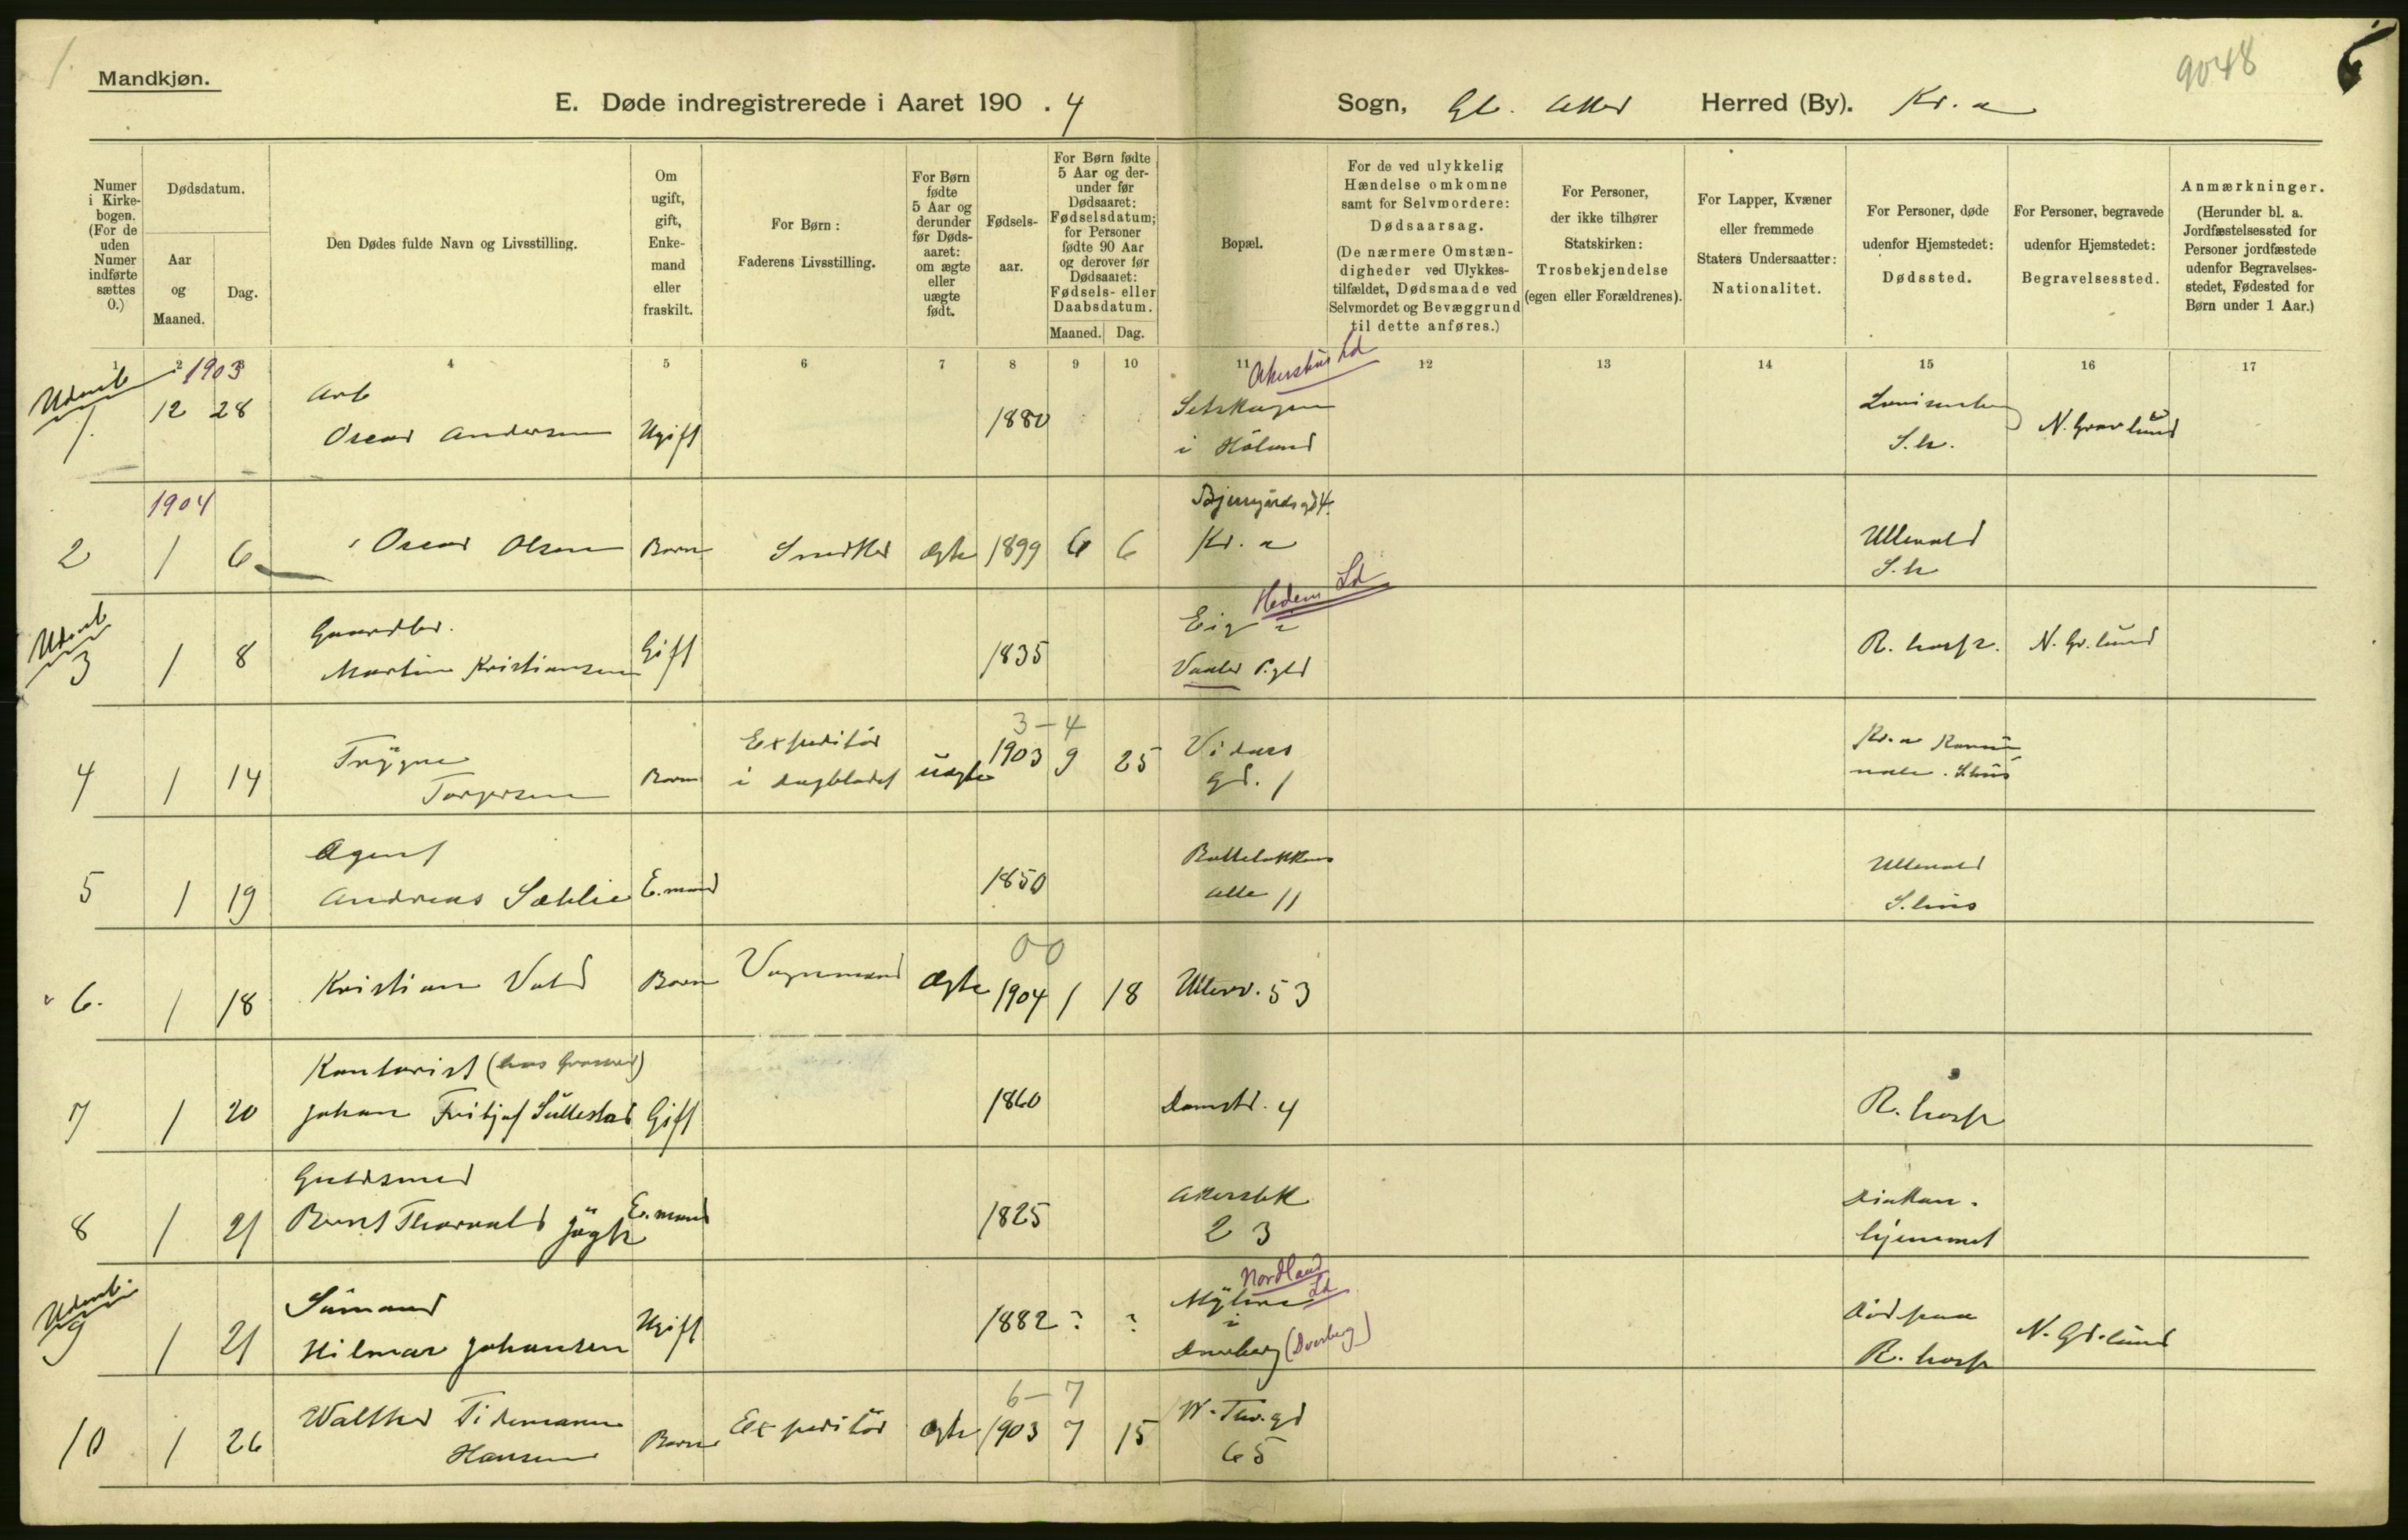 Mandkjøn.
9048
E. Døde indregistrerede i Aaret 190 . 4 Sogn, Gl. Aker Herred (By). Kr. a
Numer i Kirkebogen. (For de uden Numer indførte sættes 0.)
Dødsdatum.
Aar og Maaned.
Dag.
Den Dødes fulde Navn og Livsstilling.
Om ugift, gift, Enkemand eller fraskilt.
For Børn: Faderens Livsstilling.
For Børn fødte 5 Aar og derunder før Dødsaaret: om ægte eller uægte født.
Fødselsaar.
For Børn fødte 5 Aar og derunder før Dødsaaret: Fødselsdatum; for Personer fødte 90 Aar og derover før Dødsaaret: Fødsels- eller Daabsdatum.
Maaned. Dag.
Bopæl.
For de ved ulykkelig Hændelse omkomne samt for Selvmordere: Dødsaarsag.
(De nærmere Omstændigheder ved Ulykkestilfældet, Dødsmaade ved Selvmordet og Bevæggrund til dette anføres.)
For Personer, der ikke tilhører Statskirken: Trosbekjendelse (egen eller Forældrenes).
For Lapper, Kvæner eller fremmede Staters Undersaatter: Nationalitet.
For Personer, døde udenfor Hjemstedet: Dødssted.
For Personer, begravede udenfor Hjemstedet: Begravelsessted.
Anmærkninger.
(Herunder bl. a. Jordfæstelsessted for Personer jordfæstede udenfor Begravelsesstedet, Fødested for Børn under 1 Aar.)
1 2 3 4 5 6 7 8 9 10 11 12 13 14 15 16 17
Udenb 1903 Akershus Ld
1. 12 28 Arb Oscar Andersen Ugift 1880 Setskogen i Höland S.h. N. Gravlund
1904
2 1 6 Oscar Olsen Barn Snedker ægte 1899 6 6 Kr. a Ullevold S.h
Udenb Hedem Ld
3 1 8 Gaardbr. Martin Kristiansen Gift 1835 Vaaler P.gld R. hosp. N. Gr. lund
3 - 4
4 1 14 Trygve Torgersen Barn Expeditör i Dagbladet uægte 1903 9 25 Vidars gd. 1
5 1 19 Agent Andreas Sæhlie E.mand 1850 Alle 11 Ullevold S.hus
0 0
6. 1 18 Kristian Vold Barn Vognmand Ægte 1904 1 18 Ullevv. 53
7 1 20 Kontorist Johan Fritjof Sullestad Gift 1860 Damstr. 4 R. hosp
8 1 21 Guldsmed Bernt Thorvald E.mand 1825 Akersbk 23 Diakonhjemmet
Udenb. Nordland Ld
9 1 21 Sömand Hilmar Johansen Ugift 1882 ? ? i Dverberg (Dverberg) Död paa R. hosp N. Gr. lund
6 - 7
10 1 26 Walther Tidemann Hansen Barn Expeditör ægte 1903 7 15 W. Thr. gd 65